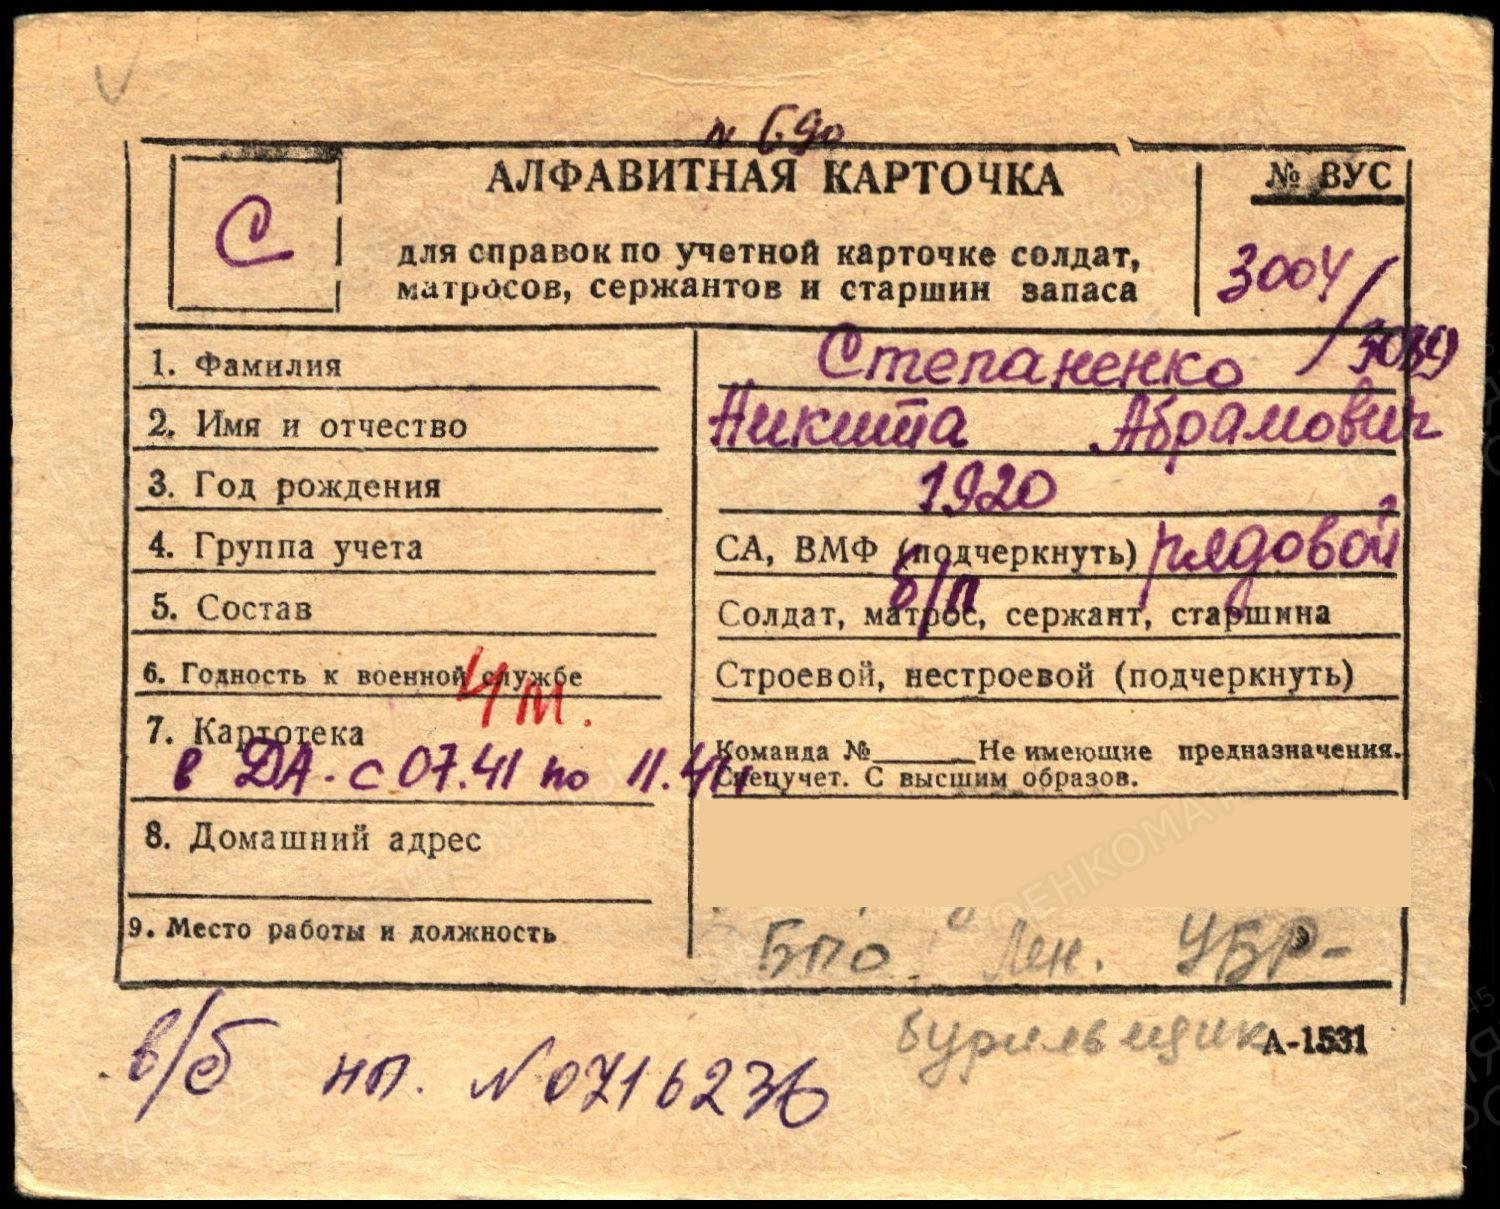 N 690
АЛФАВИТНАЯ КАРТОЧКА
№ ВУС
С
для справок по учетной карточке солдат,
матросов, сержантов и старшин запаса
3004/
3039
1. Фамилия Степаненко
2. Имя и отчество Никита Абрамович
3. Год рождения 1920
4. Группа учета СА, ВМФ (подчеркнуть) рядовой
б/п
5. Состав Солдат, матрос, сержант, старшина
6. Годность к военной службе Строевой, нестроевой (подчеркнуть)
7. Картотека Команда №______ Не имеющие предназначения.
в ДА. с 07.41 по 11.41 Спецучет. С высшим образов.
8. Домашний адрес
9. Место работы и должность БПО Лен. УБР-
бурильщик
А-1531
в/б нп. N 0716236